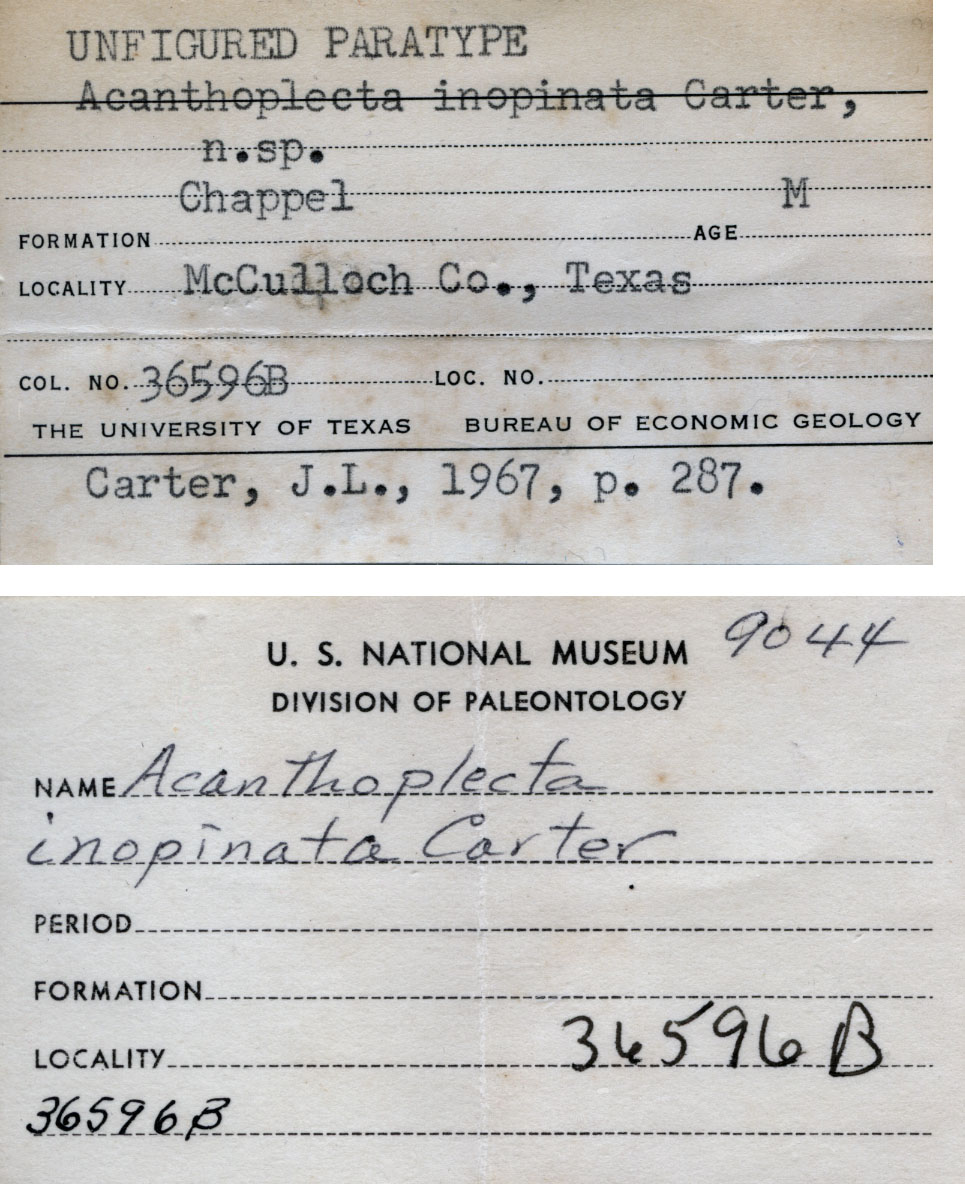 UNFIGURED PARATYPE
Acanthoplecta inopinata Carter,
n.sp.
Chappel M
FORMATION AGE
LOCALITY McCulloch Co., Texas
COL. NO. 36596B LOC. NO.
THE UNIVERSITY OF TEXAS BUREAU OF ECONOMIC GEOLOGY
Carter, J.L., 1967, p. 287.
U. S. NATIONAL MUSEUM 9044
DIVISION OF PALEONTOLOGY
NAME Acanthoplecta
inopinata Carter
PERIOD
FORMATION
LOCALITY 36596B
36596B